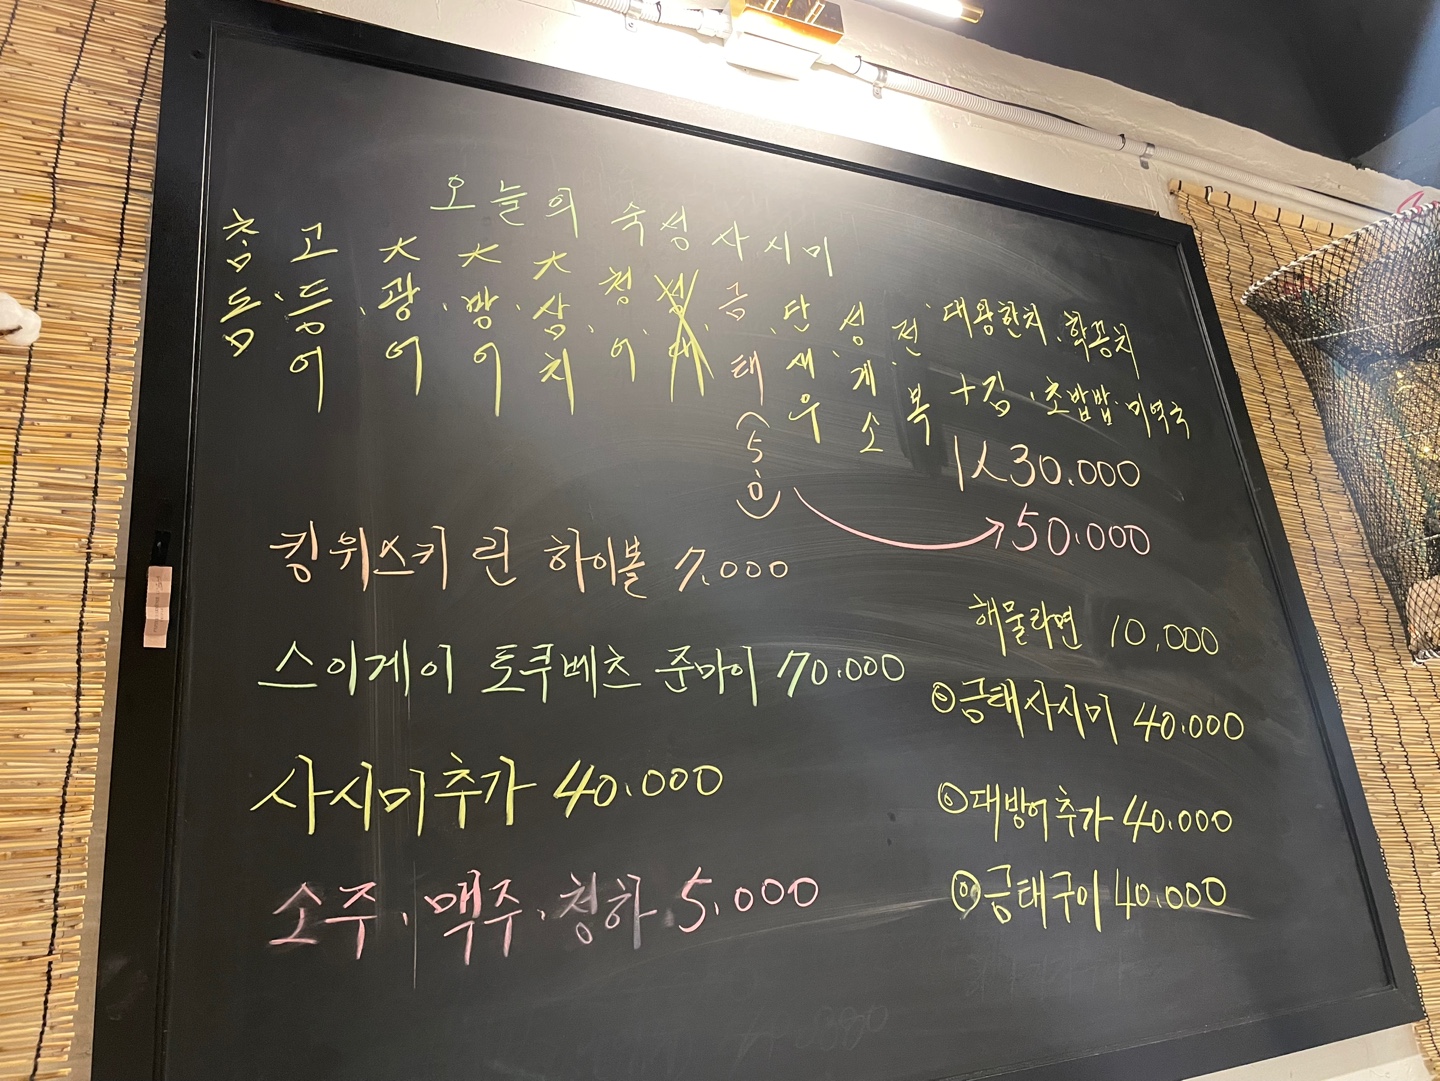 오늘의 숙성 사시미
참돔 · 고등어 · 大광어 · 大방어 · 大삼치 · 청어 · 금태(5.0) · 단새우 · 성게소 · 전복 · 대왕한치 · 학꽁치
+김 · 초밥밥 · 미역국
1人 30.000
50.000
킹위스키 린 하이볼 7.000
해물라면 10,000
스이게이 토쿠베츠 준마이 70.000
◎금태사시미 40.000
사시미추가 40.000
◎대방어추가 40.000
◎금태구이 40.000
소주 · 맥주 · 청하 5.000